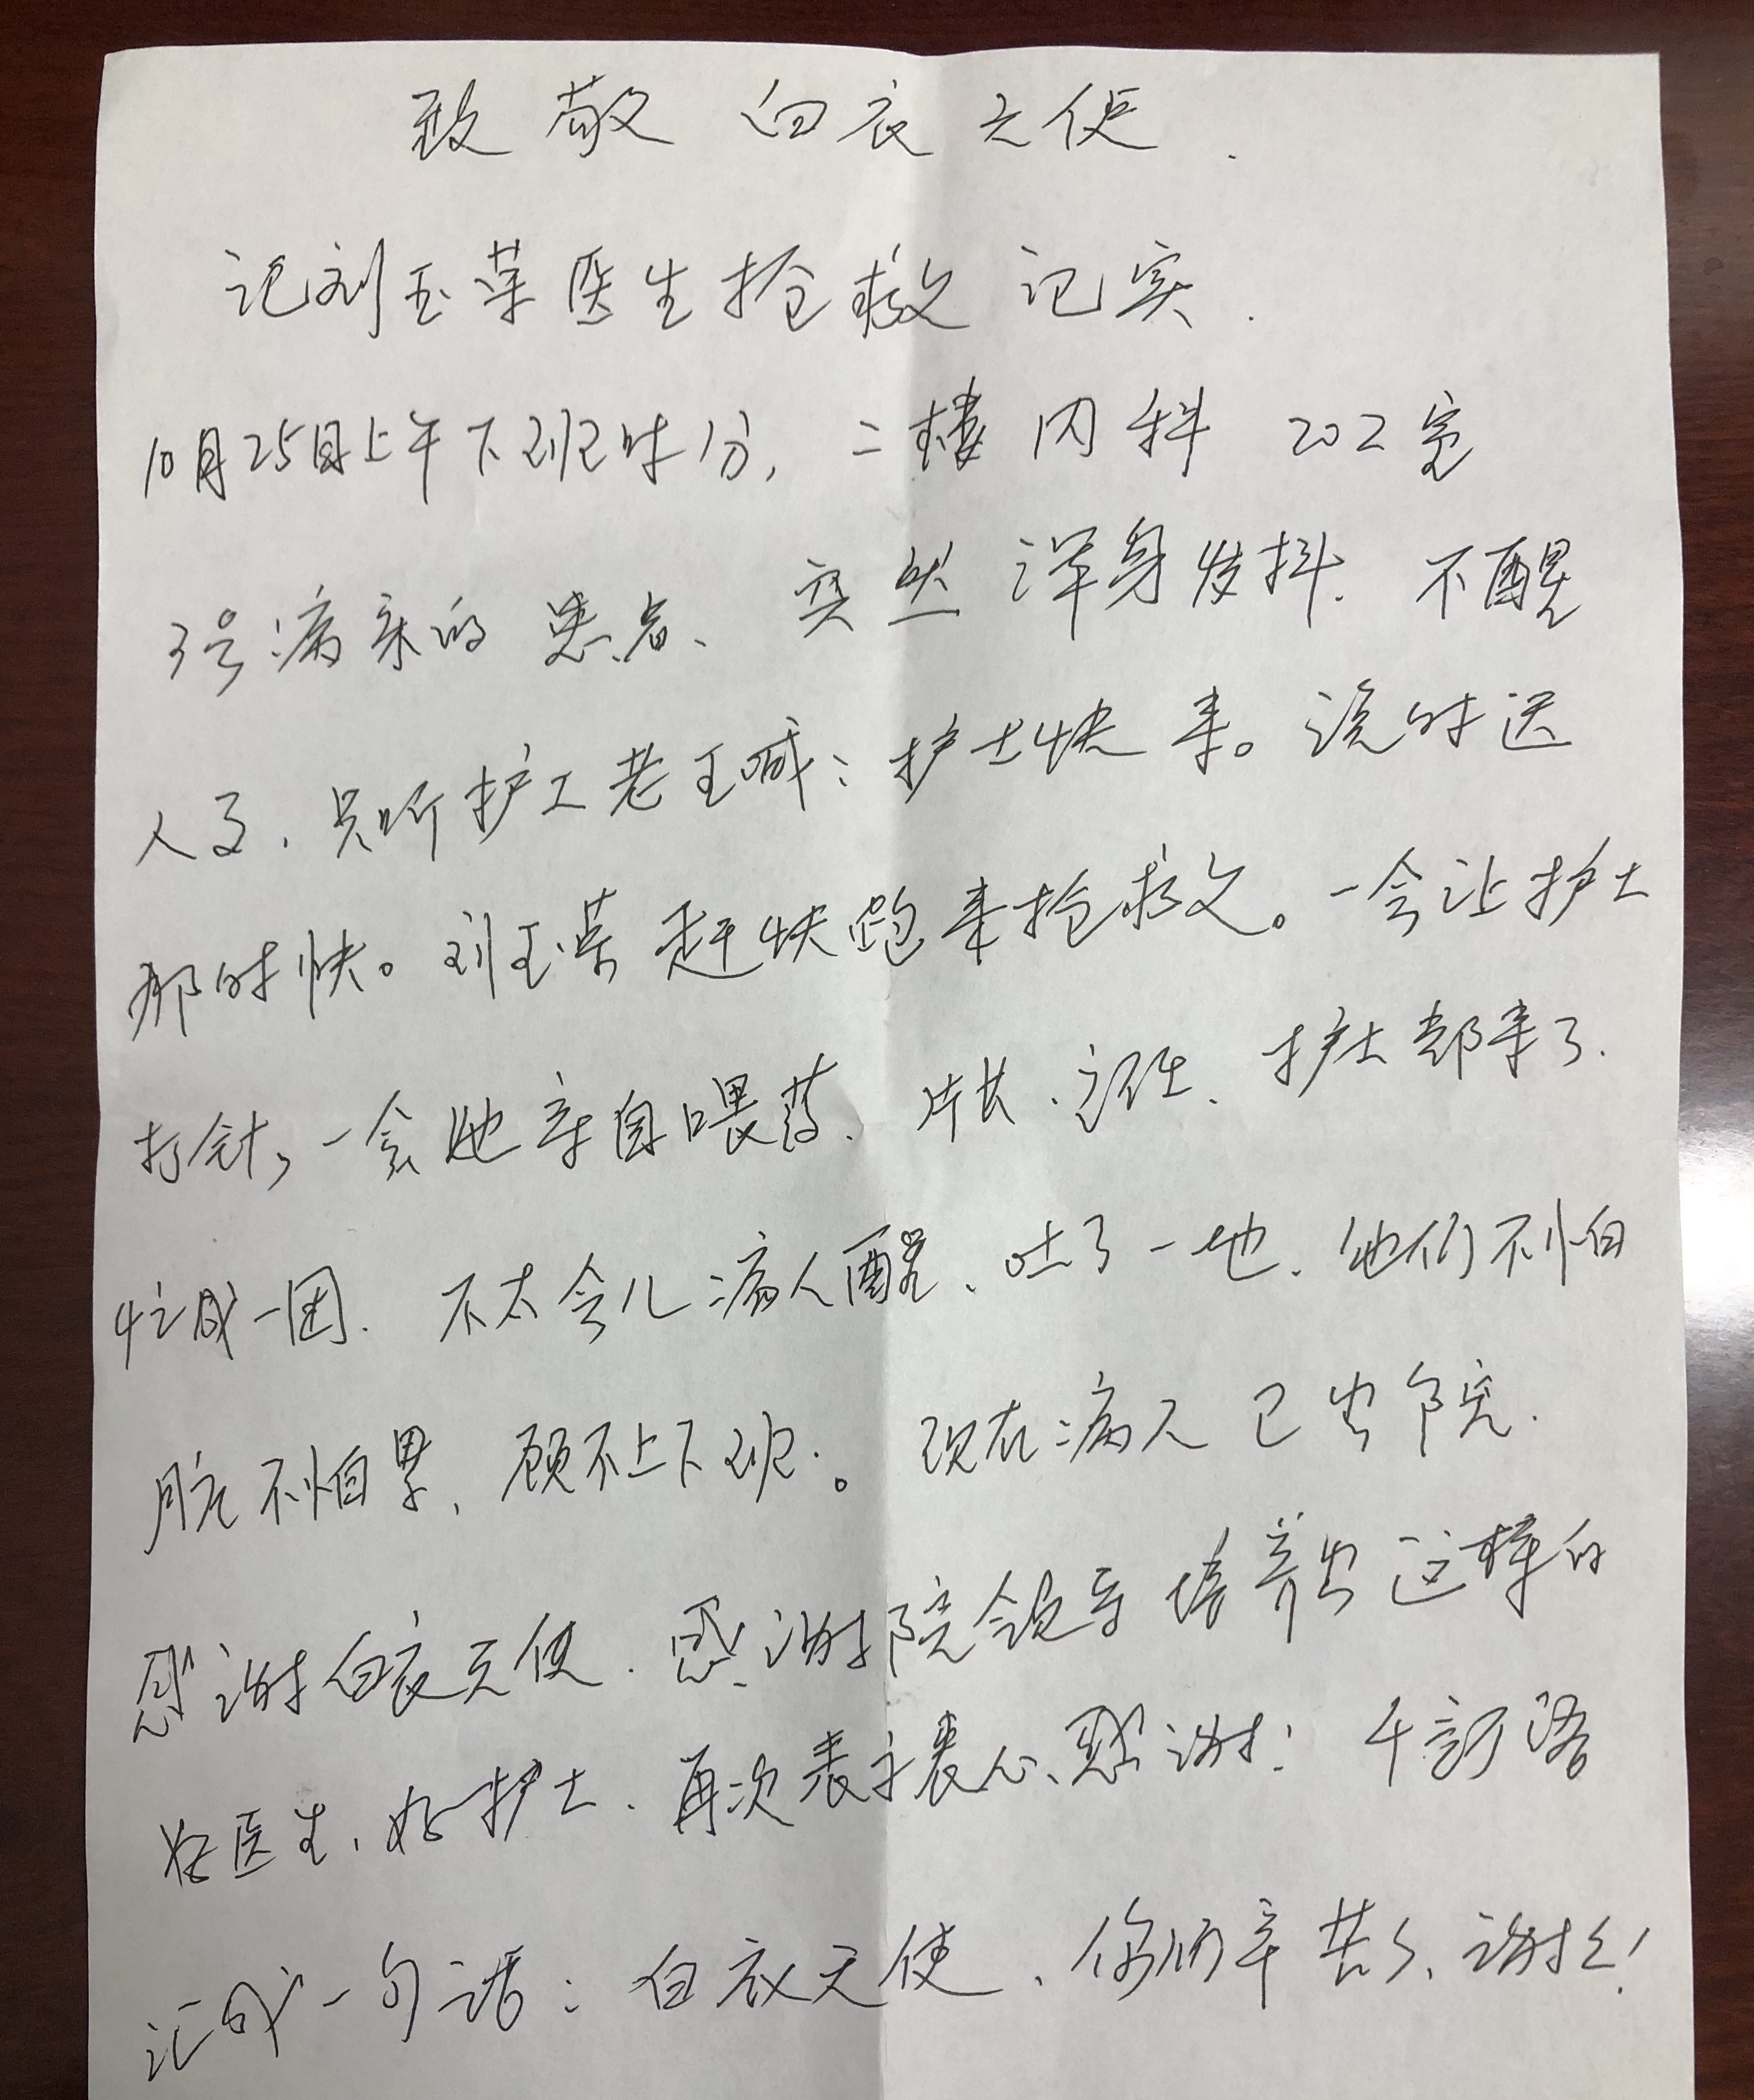 致敬白衣天使.
记刘玉荣医生抢救记实.
10月25日上午下班时分,二楼内科 202室
3号病床的患者、突然浑身发抖.不醒
人了.只听护工老王喊:护士快来。说时迟
那时快。刘玉荣赶快跑来抢救。一会让护士
打针,一会她亲自喂药、护士都来了.
忙成一团.不太会儿病人醒、吐了一地.他们不怕
脏不怕累,顾不上下班。现在病人已出院.
感谢白衣天使.感谢院领导培养出这样的
好医生,好护士.再次表示衷心感谢!千言万语
汇成一句话:白衣天使、你们辛苦了、谢谢!